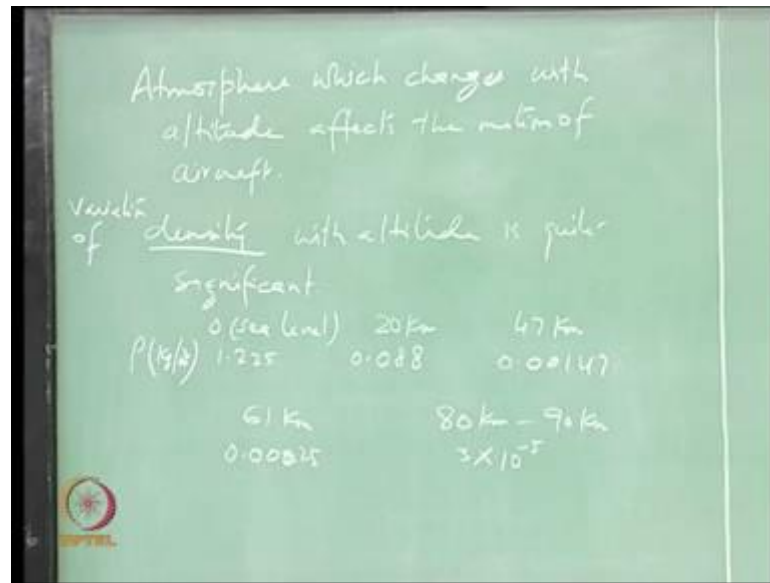 Atmosphere which changes with
altitude affects the motion of
aircraft.
Variation
of density with altitude is quite
significant.
0 (sea level) 20 Km 47 Km
ρ(kg/m³) 1.225 0.088 0.00147
61 Km 80 Km - 90 Km
0.00025 3 × 10⁻⁵
NPTEL